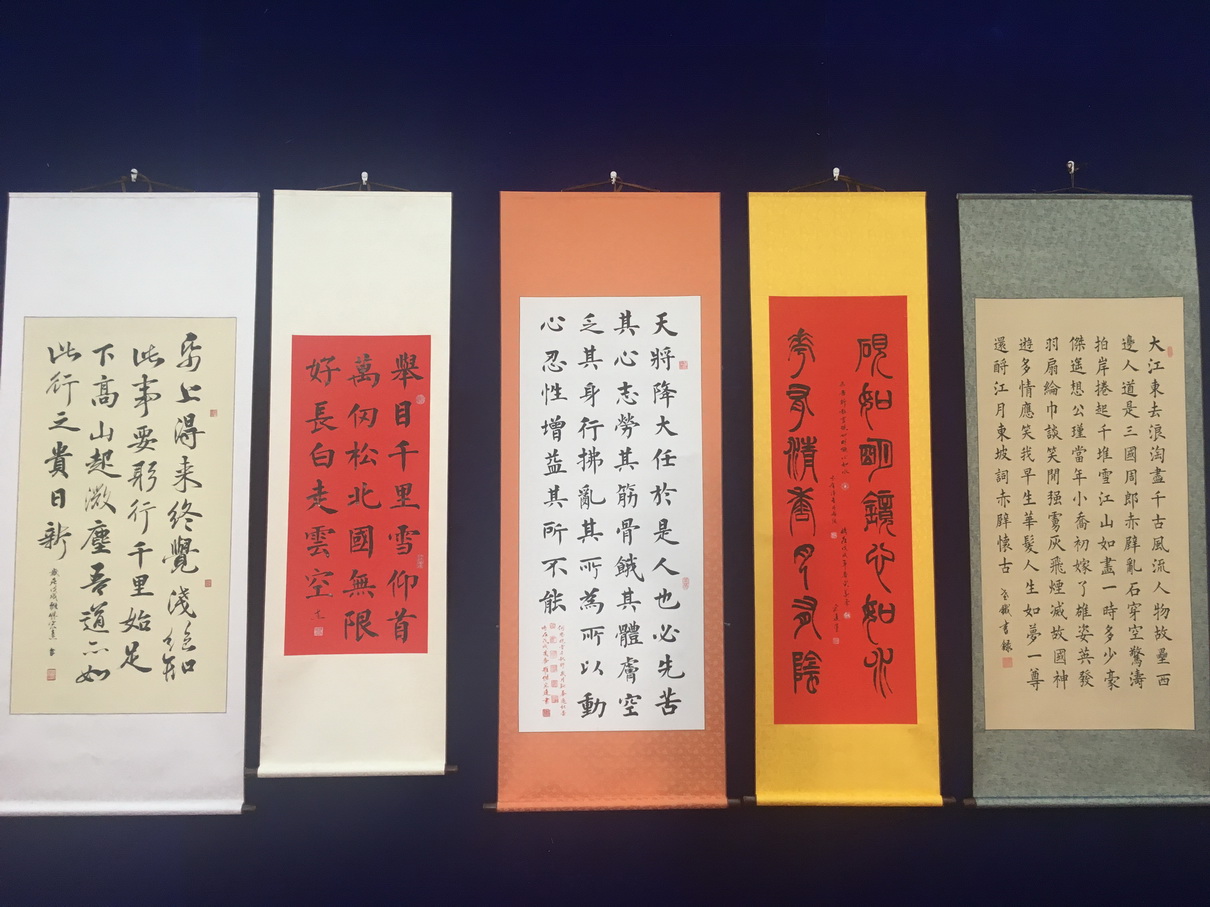 大江東去浪淘盡千古風流人物故壘西
邊人道是三國周郎赤壁亂石穿空驚濤
拍岸捲起千堆雪江山如畫一時多少豪
傑遙想公瑾當年小喬初嫁了雄姿英發
羽扇綸巾談笑間强虜灰飛煙滅故國神
遊多情應笑我早生華髮人生如夢一尊
還酹江月東坡詞赤壁懷古
硯如明鏡心如水
花有清香月有陰
天將降大任於是人也必先苦
其心志勞其筋骨餓其體膚空
乏其身行拂亂其所為所以動
心忍性增益其所不能
舉目千里雪仰首
萬仞松北國無限
好長白走雲空
紙上得来終覺淺絶知
此事要躬行千里始足
下高山起微塵吾道亦如
此行之貴日新